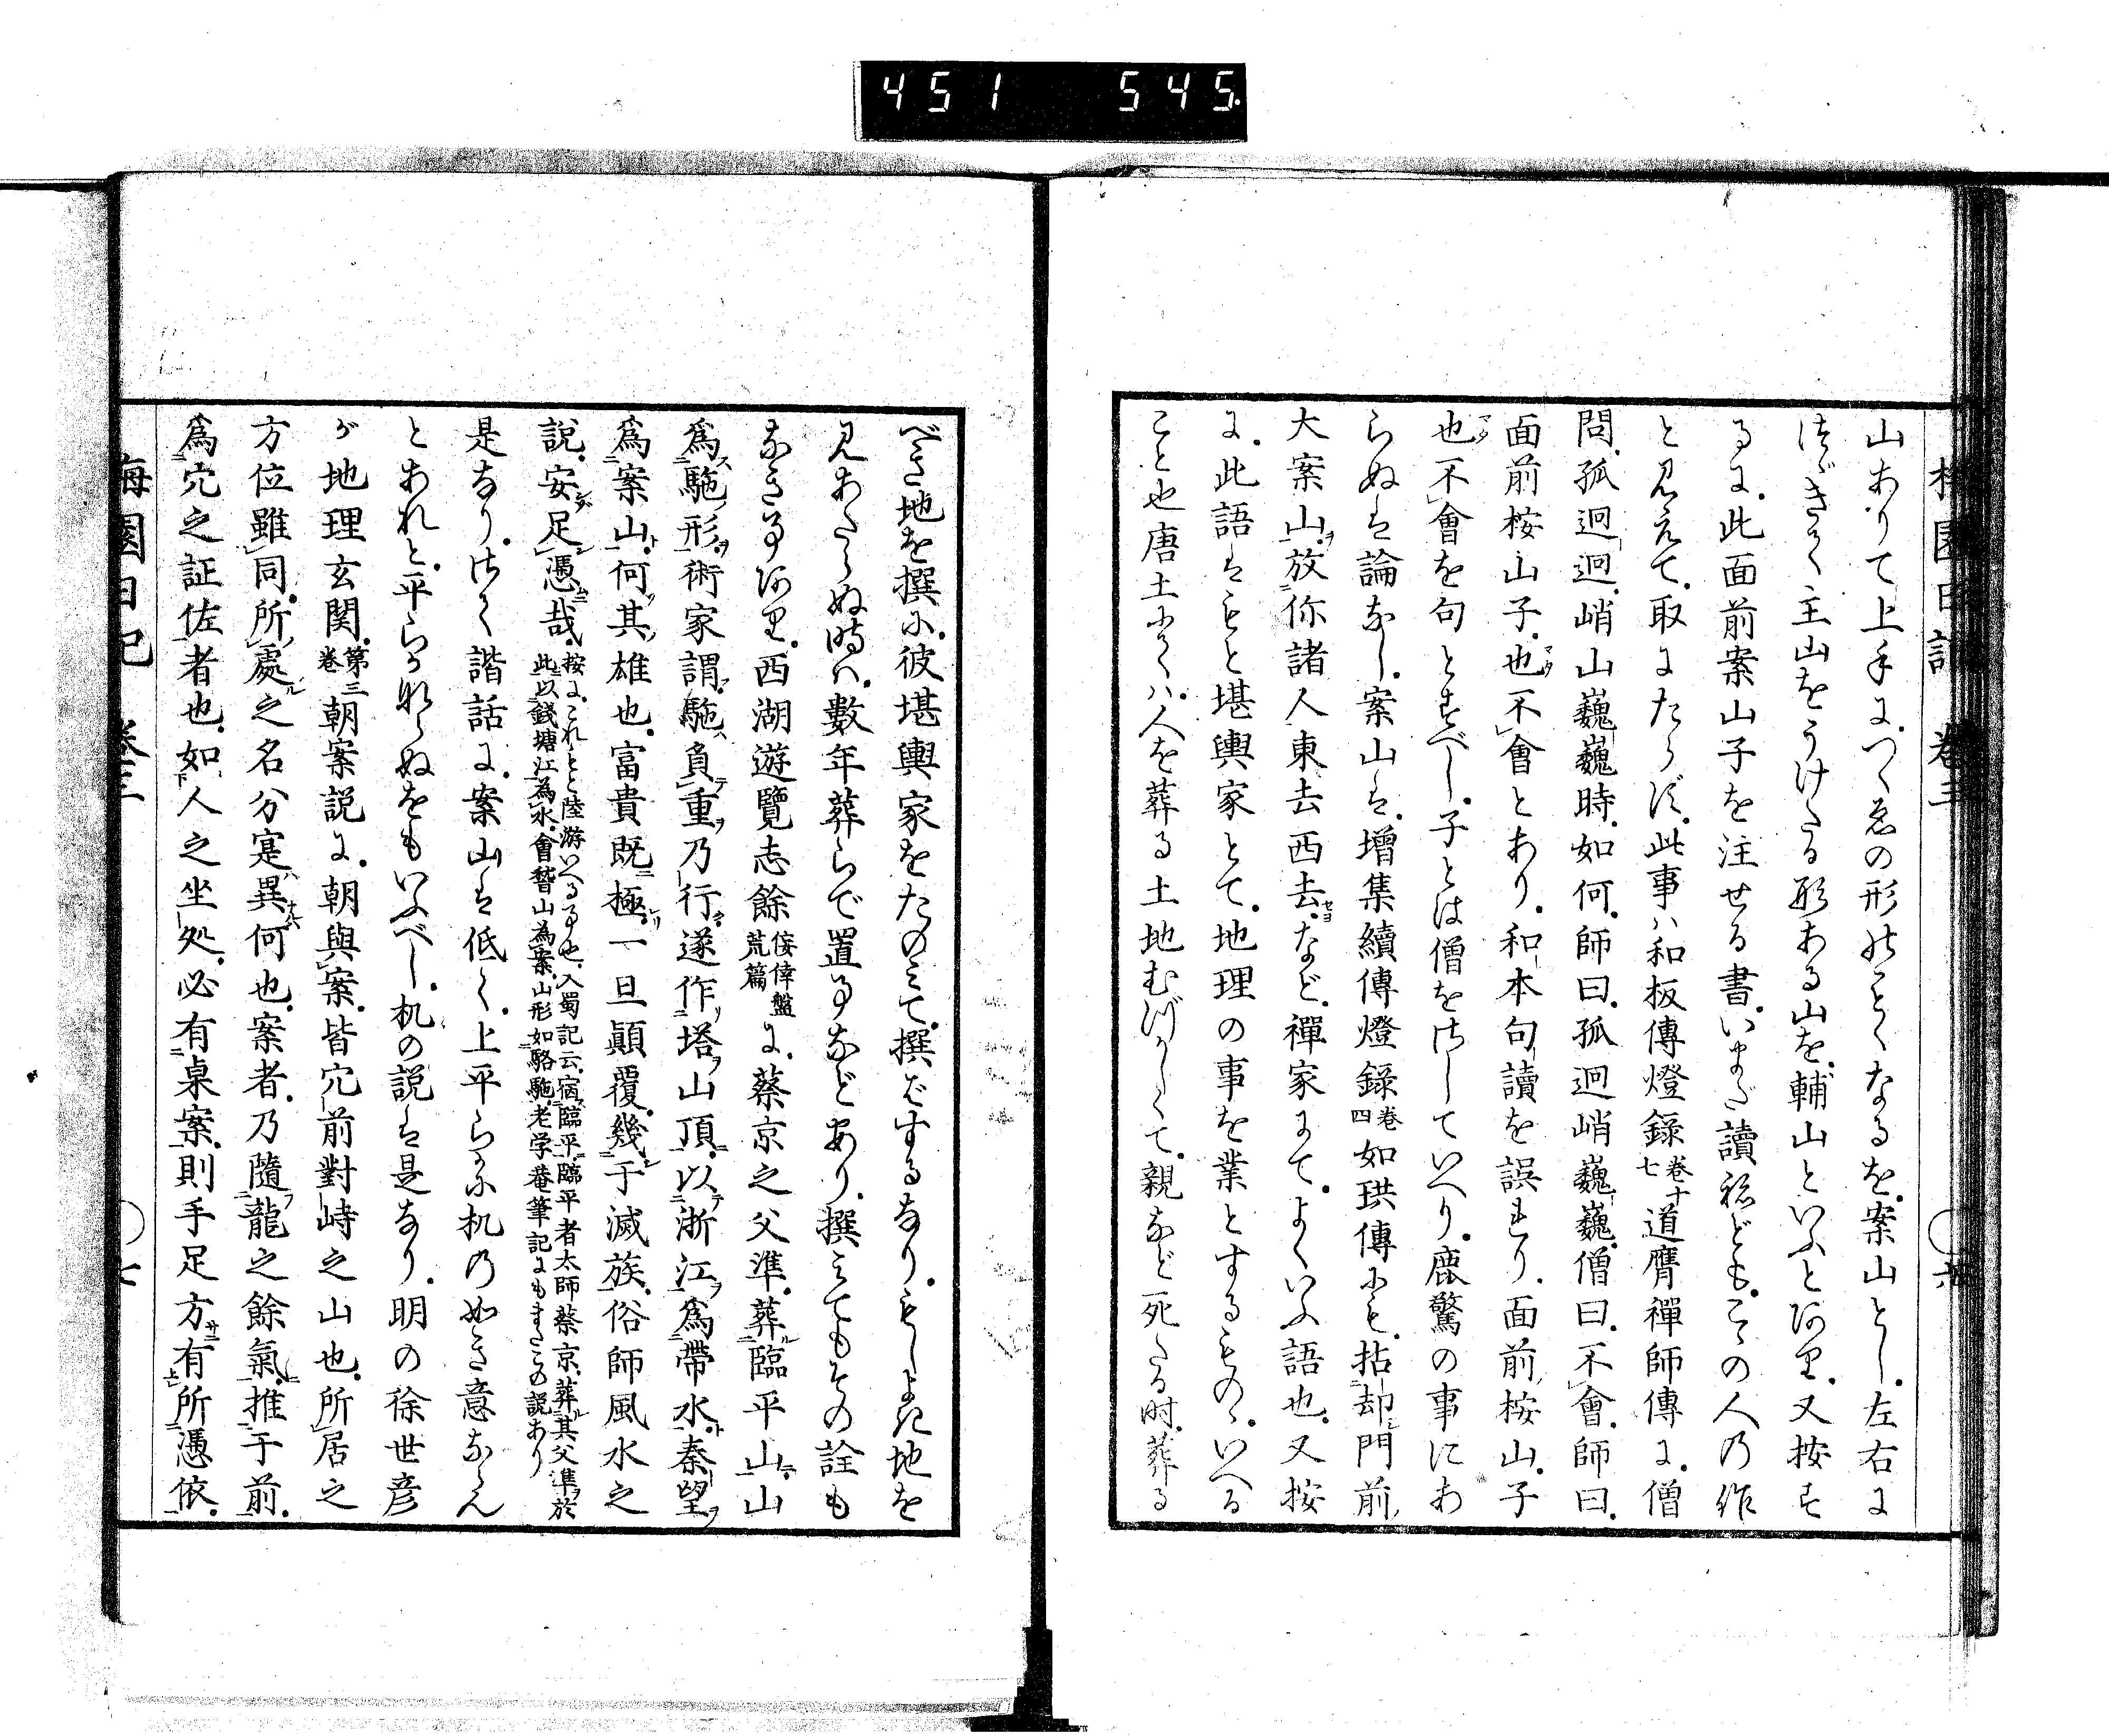 451 545.
梅園日記 卷三 ○六
山ありて上手に。つくゑの形のごとくなるを。案山とし。左右に
つゞきて主山をうけたる形ある山を。輔山といふとあり。又按ず
るに。此面前案山子を注せる書。いまだ讀ねども。こゝの人の作
と見えて。取にたらず。此事ハ和板傳燈錄卷十七道膺禪師傳に。僧
問。孤迥迥。峭山巍巍時。如何。師曰。孤迥峭巍巍。僧曰。不會。師曰。
面前桉山子。也不會とあり。和本句讀を誤れり。面前桉山。子
也不會を句とすべし。子とは僧をさしていへり。鹿驚の事にあ
らぬは論なし。案山は。增集續傳燈錄卷四如珙傳にも。拈却門前
大案山。放你諸人東去西去。など。禪家にて。よくいふ語也。又按
に。此語はもと堪輿家とて。地理の事を業とするものゝ。いへる
こと也唐土にてハ。人を葬る土地むづかしくて。親など死たる時。葬る
べき地を撰に。彼堪輿家をたのみて。撰ばするなり。もしよき地を
見あたらぬ時ハ。數年葬らで置事などあり。撰みてもその詮も
なき事あり。西湖遊覽志餘佞倖盤荒篇に。蔡京之父準。葬臨平山。山
爲駞形。術家謂。駞負重乃行。遂作塔山頂。以浙江爲帶水。秦望
爲案山。何其雄也。富貴既極。一旦顚覆。幾于滅族。俗師風水之
說。安足憑哉。按に。これもと陸游いへる事也。入蜀記云。宿臨平。臨平者太師蔡京。葬其父準於此。以錢塘江爲水。會稽山爲案。山形如駱駞。老学菴筆記にもまたこの説あり
是なり。さて諧話に。案山は低く。上平らかに机の如き意ならん
とあれど。平らかならぬをもいふべし。机の説は是なり。明の徐世彦
が地理玄関。第三卷朝案説に。朝與案。皆穴前對峙之山也。所居之
方位雖同。所處之名分寔異。何也。案者。乃隨龍之餘氣。推于前。
爲穴之証佐者也。如人之坐処。必有桌案。則手足方有所憑依。
梅園日記 卷三 ○七